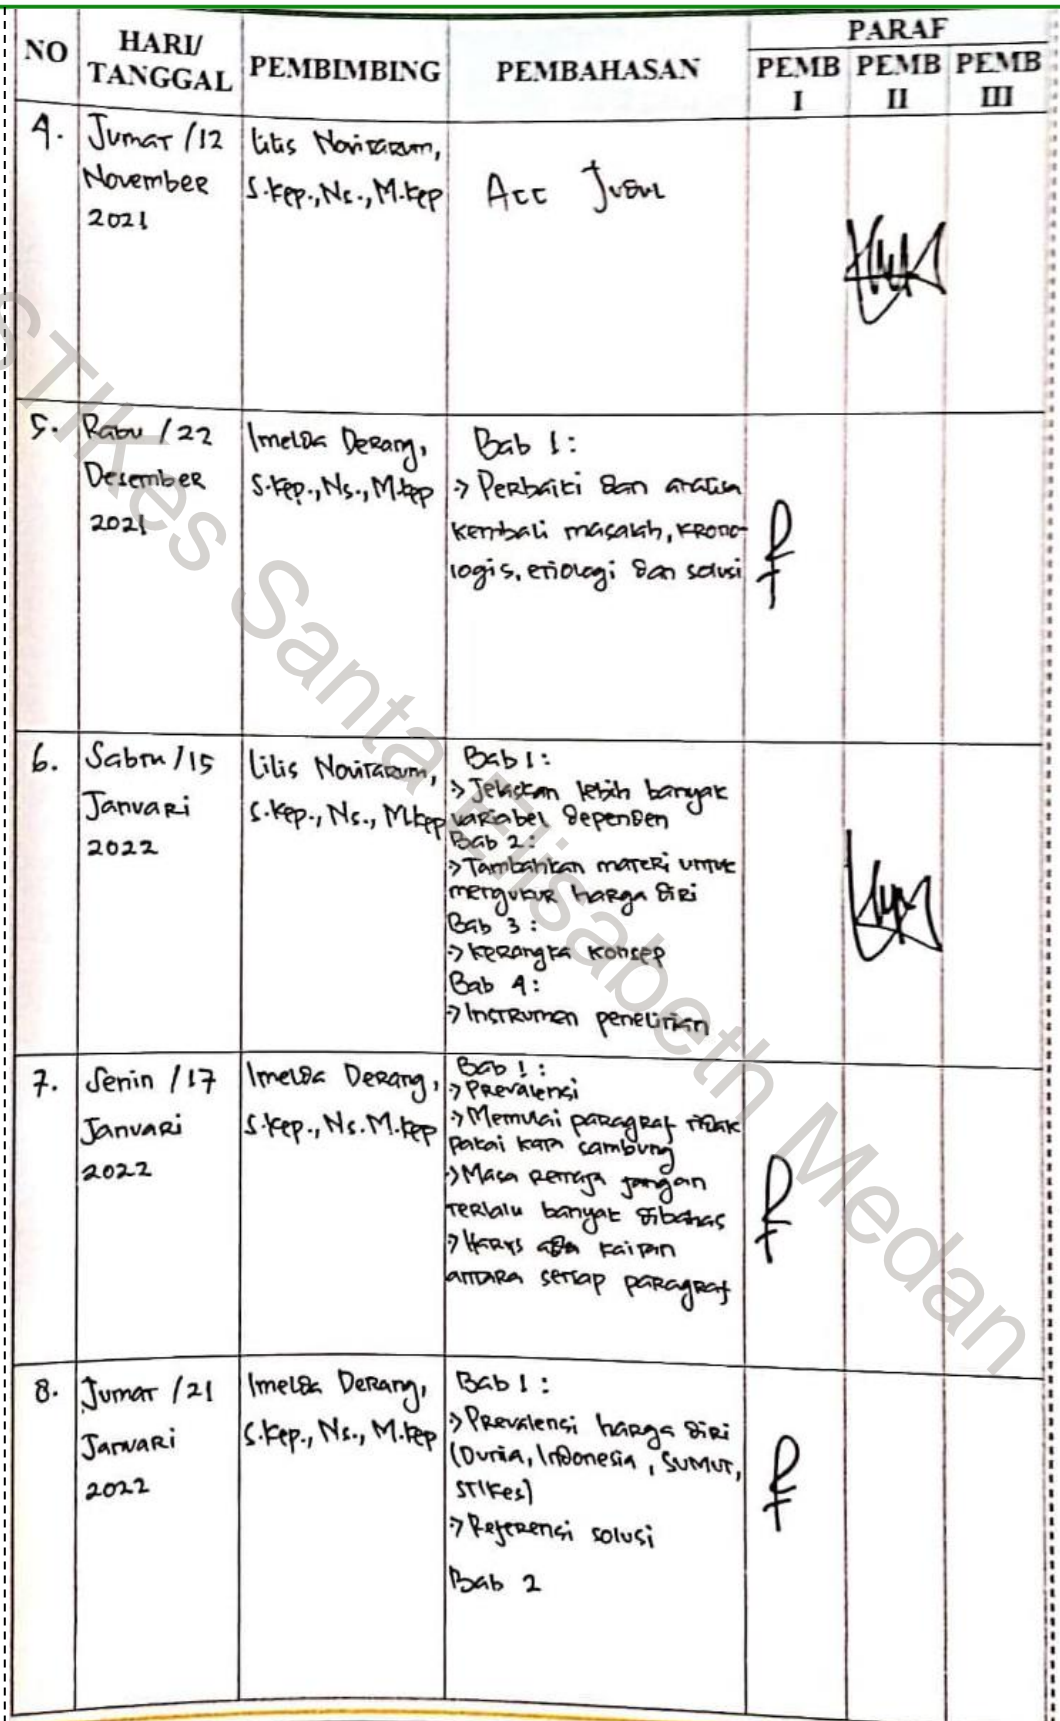 NO HARI/ TANGGAL PEMBIMBING PEMBAHASAN PARAF
PEMB I PEMB II PEMB III
4. Jumat /12 November 2021
Lilis Novitarum,
S.Kep., Ns., M.Kep
Acc Judul
5. Rabu / 22
Desember
2021
Imelda Derang,
S.Kep., Ns., M.Kep
Bab 1:
-> Perbaiki dan analisa
kembali masalah, krono-
logis, etiologi dan solusi
6. Sabtu /15
Januari
2022
Lilis Novitarum,
S.Kep., Ns., M.Kep
Bab 1:
-> Jelaskan lebih banyak
variabel dependen
Bab 2:
-> Tambahkan materi untuk
mengukur harga diri
Bab 3:
-> Kerangka Konsep
Bab 4:
-> Instrumen penelitian
7. Senin / 17
Januari
2022
Imelda Derang,
S.Kep., Ns. M.Kep
Bab 1:
-> Prevalensi
-> Memulai paragraf tidak
pakai kata sambung
-> Masa remaja jangan
terlalu banyak dibahas
-> Harus ada kaitan
antara setiap paragraf
8. Jumat / 21
Januari
2022
Imelda Derang,
S.Kep., Ns., M.Kep
Bab 1:
-> Prevalensi harga diri
(Dunia, Indonesia, SUMUT,
STIKes)
-> Referensi solusi
Bab 2
STIKes Santa Elisabeth Medan